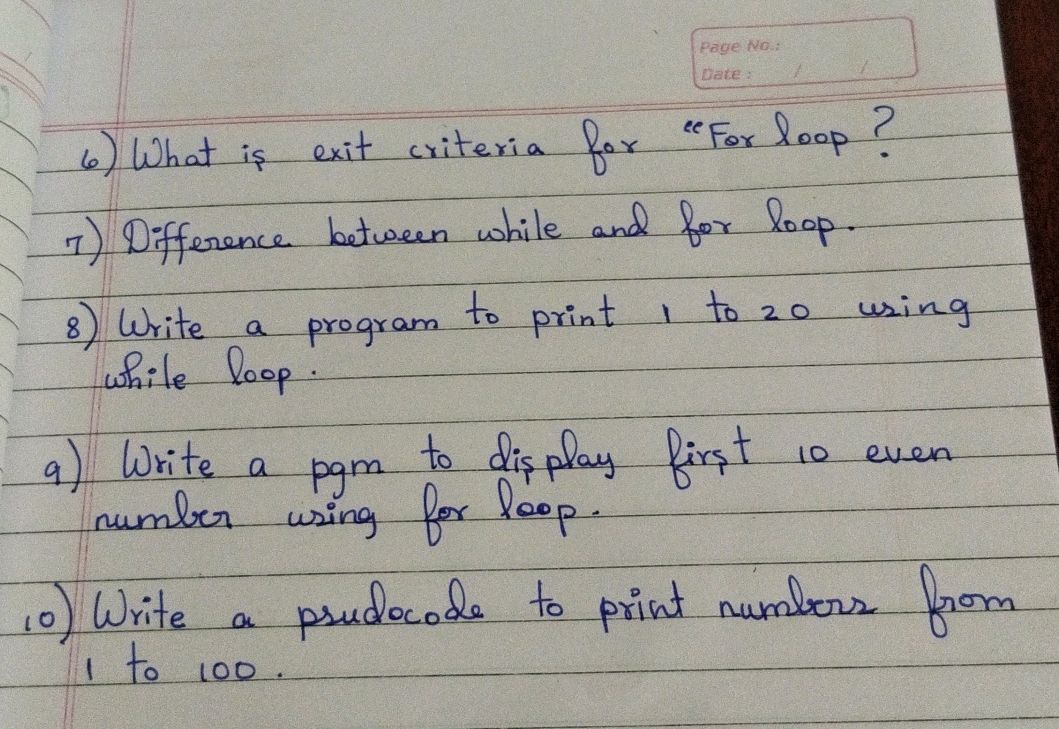 Page No.:
Date : / /
6) What is exit criteria for "For loop ?
7) Difference between while and for loop.
8) Write a program to print 1 to 20 using
while loop.
9) Write a pgm to display first 10 even
number using for loop.
10) Write a psudocode to print numbers from
1 to 100.